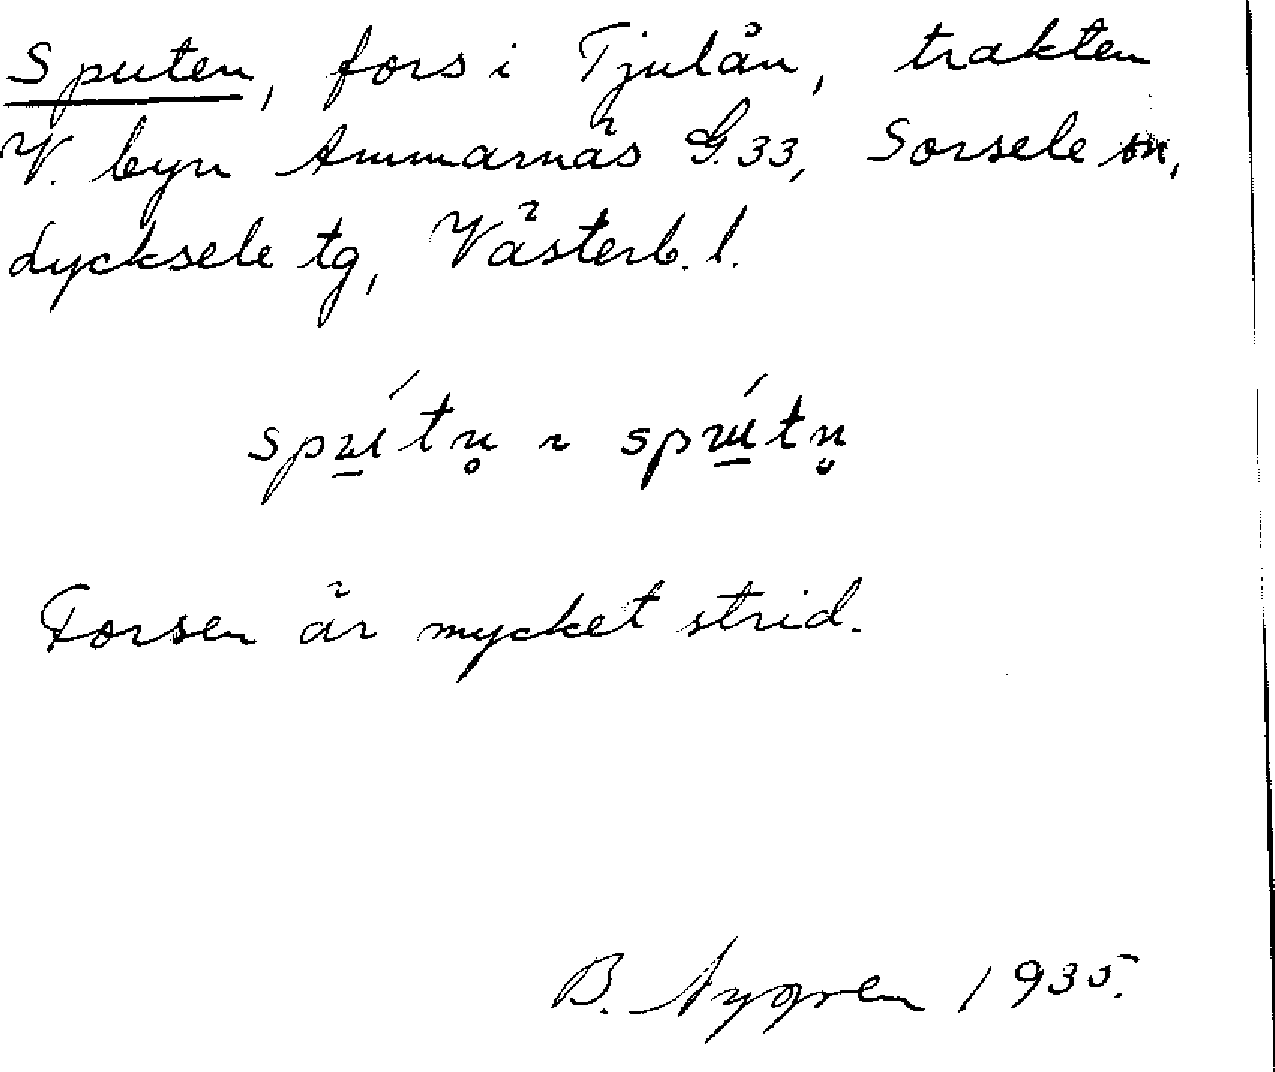 Sputen, fors i Tjulån, trakten
V. byn Ammarnäs G. 33, Sorsele sn,
Lycksele tg, Västerb. l.
Forsen är mycket strid.
B. Nygren 1935.